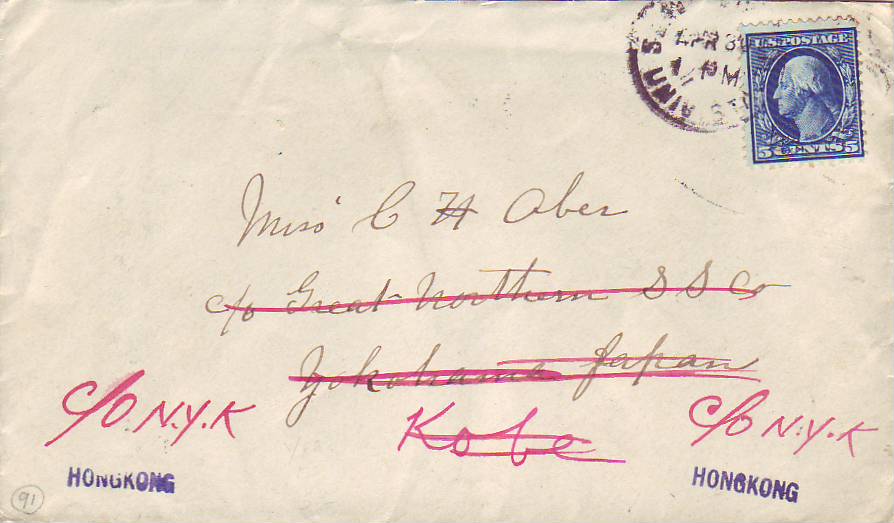 U.S. POSTAGE
5 CENTS 5
APR 30
PM
Miss C H Ober
c/o Great Northern S S Co
Yokohama Japan
c/o N.Y.K
Kobe
c/o N.Y.K
HONGKONG
HONGKONG
91